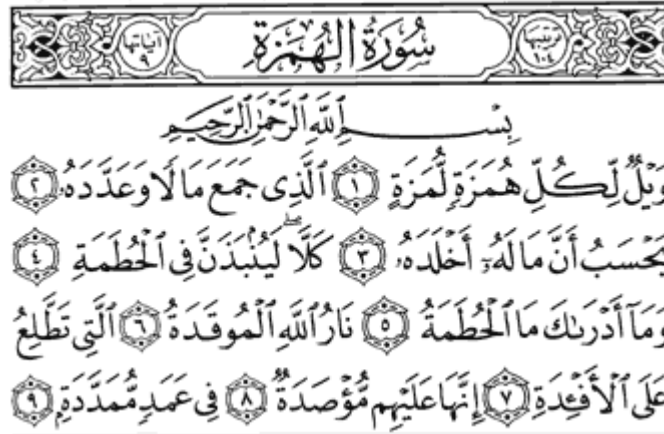 ترتيبها ١٠٤ سُورَةُ الهُمَزَةِ آياتها ٩
بِسْمِ ٱللَّهِ ٱلرَّحْمَٰنِ ٱلرَّحِيمِ
وَيْلٌ لِّكُلِّ هُمَزَةٍ لُّمَزَةٍ ١ ٱلَّذِى جَمَعَ مَالًا وَعَدَّدَهُۥ ٢
يَحْسَبُ أَنَّ مَالَهُۥٓ أَخْلَدَهُۥ ٣ كَلَّا ۖ لَيُنۢبَذَنَّ فِى ٱلْحُطَمَةِ ٤
وَمَآ أَدْرَىٰكَ مَا ٱلْحُطَمَةُ ٥ نَارُ ٱللَّهِ ٱلْمُوقَدَةُ ٦ ٱلَّتِى تَطَّلِعُ
عَلَى ٱلْأَفْـِٔدَةِ ٧ إِنَّهَا عَلَيْهِم مُّؤْصَدَةٌ ٨ فِى عَمَدٍ مُّمَدَّدَةٍۭ ٩